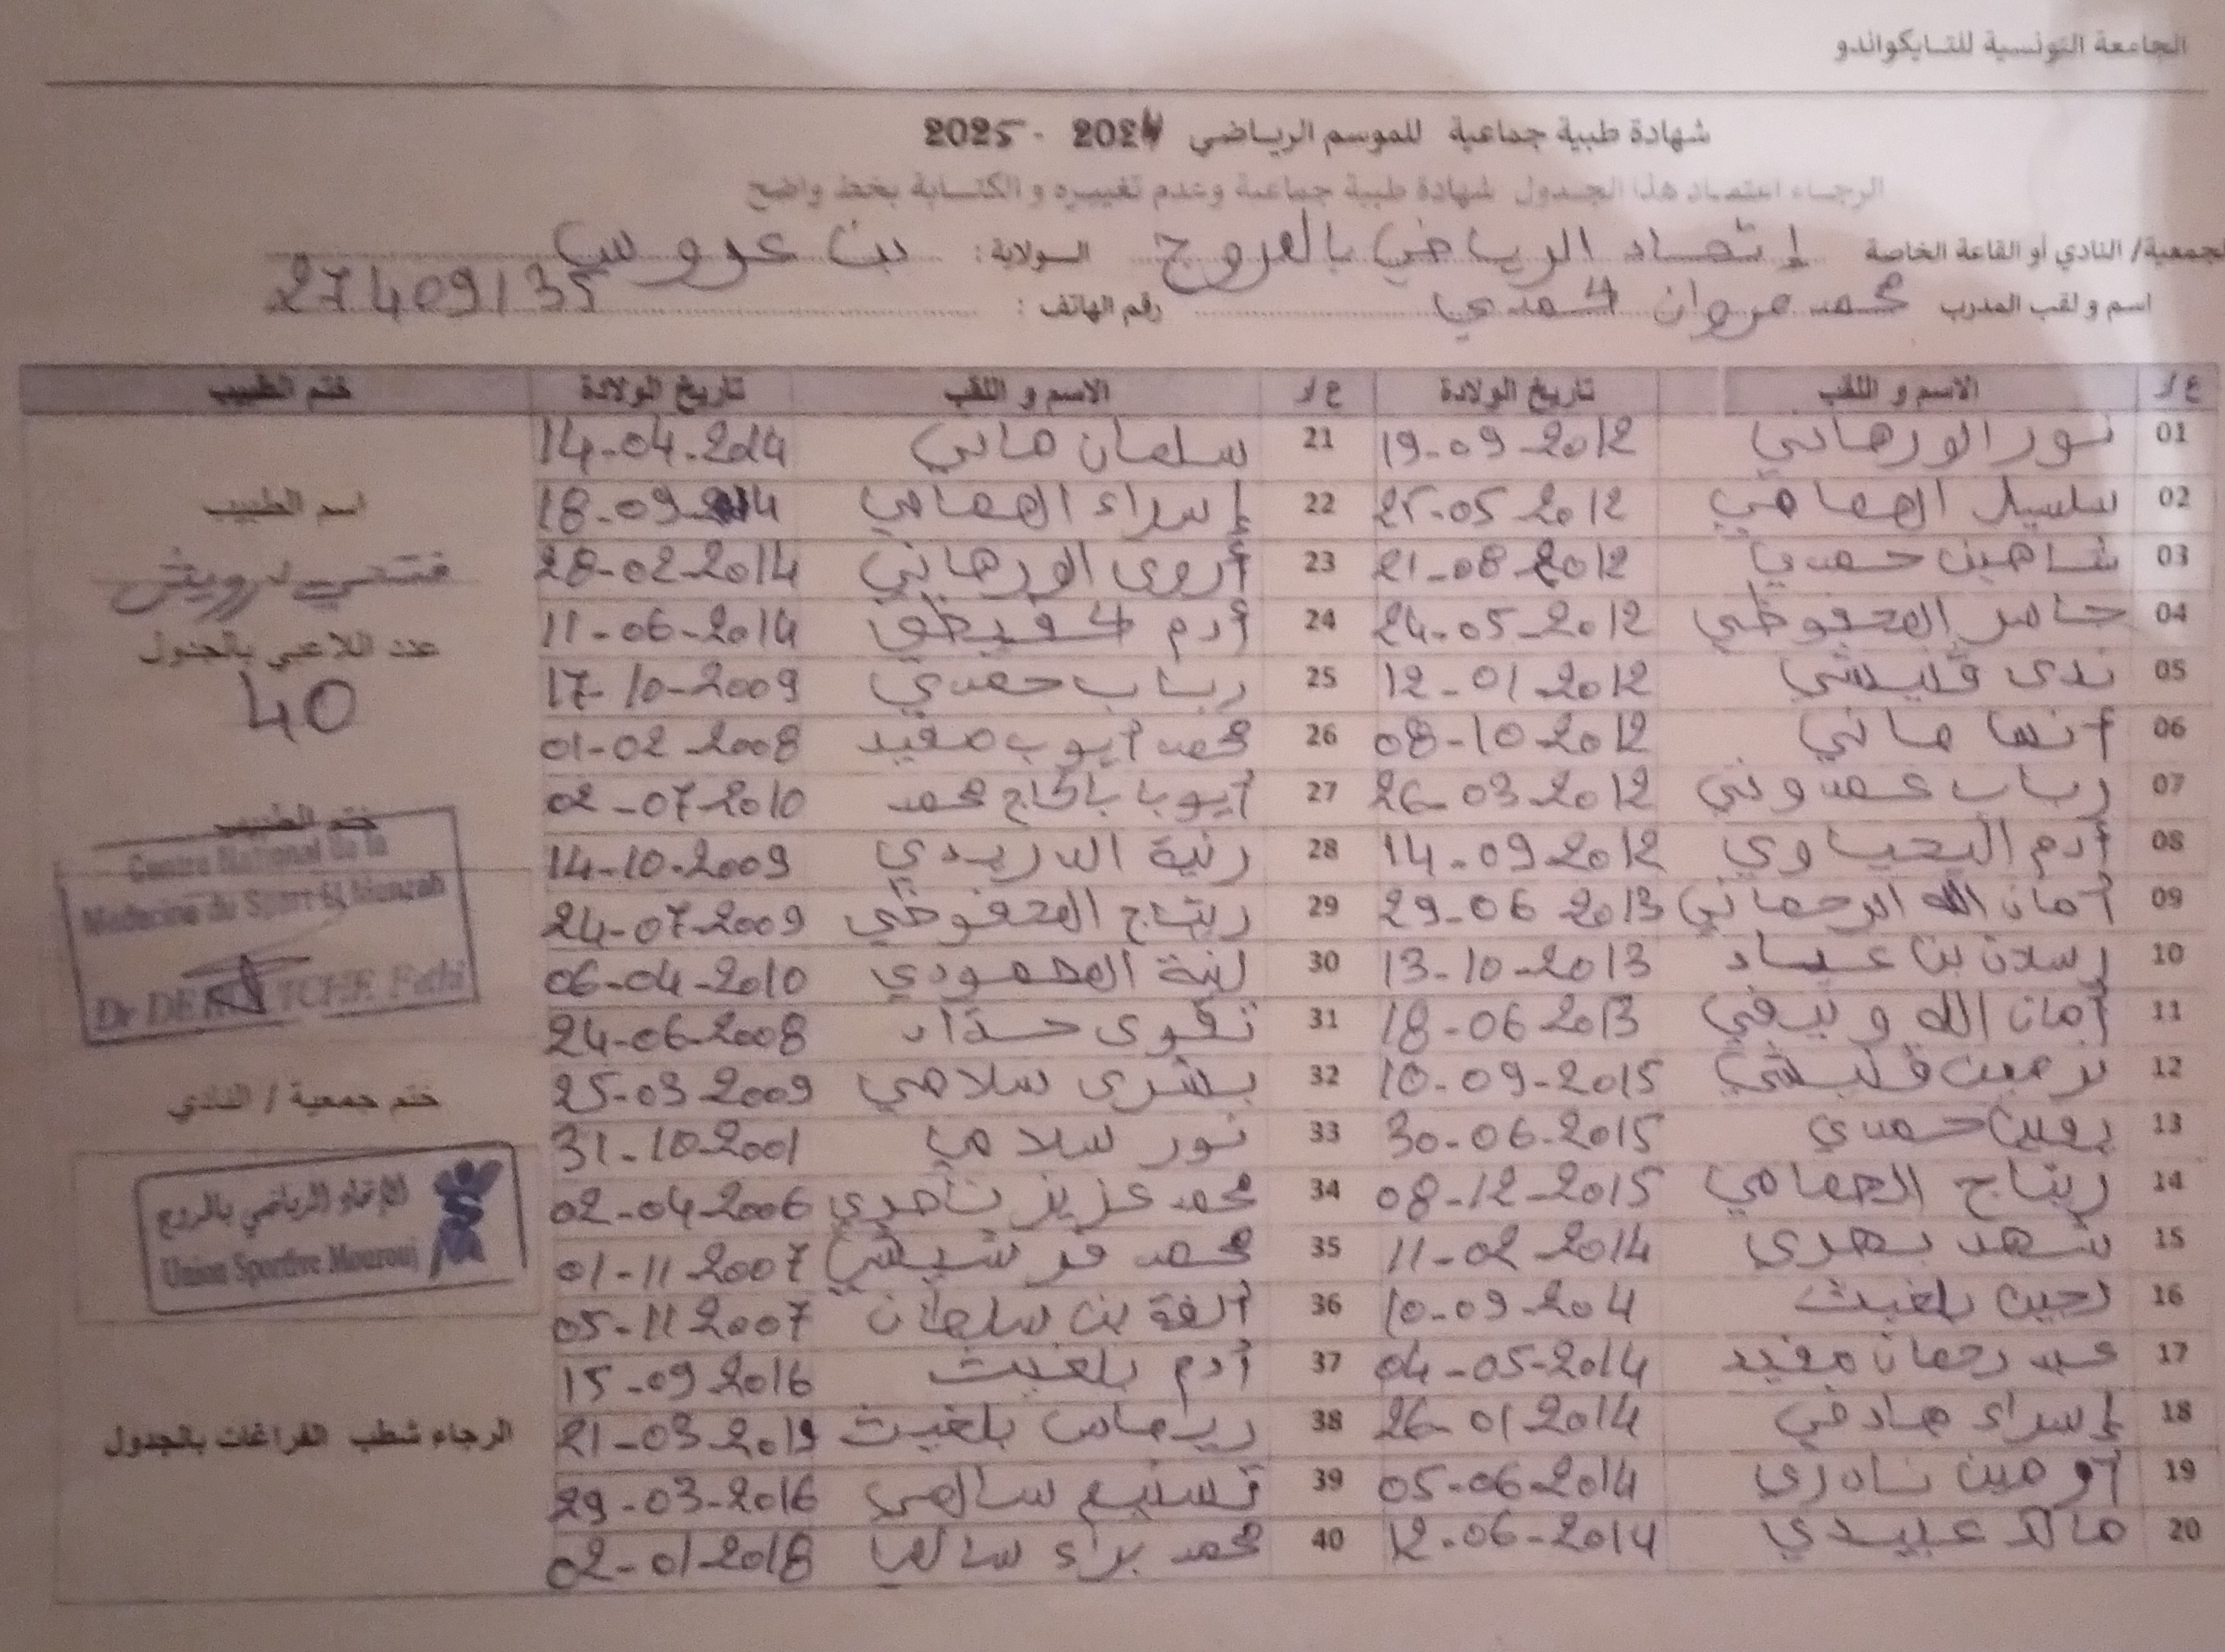 الجامعة التونسية للتايكواندو
شهادة طبية جماعية للموسم الرياضي 2024 - 2025
الرجاء اعتماد هذا الجدول شهادة طبية جماعية وعدم تغييره و الكتابة بخط واضح
الجمعية/ النادي أو القاعة الخاصة إتحاد الرياضي بالمروج الولاية: بن عروس
اسم و لقب المدرب محمد مروان حمدي رقم الهاتف: 27409135
ع/ر الاسم و اللقب تاريخ الولادة ع/ر الاسم و اللقب تاريخ الولادة ختم الطبيب
01 نور الورهاني 19-09-2012 21 سلمان ماني 14-04-2014
02 سلسبيل الهمامي 25-05-2012 22 إسراء الهمامي 18-09-2014
03 شاهين حمدي 21-08-2012 23 أروى الورهاني 28-02-2014
04 المحفوظي 24-05-2012 24 أدم حفيظي 11-06-2014
05 ندى قليشي 12-01-2012 25 رباب حمدي 17-10-2009
06 ماني 08-10-2012 26 محمد أيوب مفيد 01-02-2008
07 رباب عمدوني 26-03-2012 27 أيوب بالحاج محمد 02-07-2010
08 أدم اليحياوي 14-09-2012 28 رنية الدريدي 14-10-2009
09 أمان الله الرحماني 29-06-2013 29 ريتاج المحفوظي 24-07-2009
10 رسلان بن عياد 13-10-2013 30 لينة المحمودي 06-04-2010
11 أمان الله 18-06-2013 31 تقوى حداد 24-06-2008
12 نرمين قليشي 10-09-2015 32 بشرى سلامي 25-03-2009
13 يقين حمدي 30-06-2015 33 نور سلامي 31-10-2001
14 ريتاج الهمامي 08-12-2015 34 محمد عزيز 02-04-2006
15 شهد بحري 11-02-2014 35 محمد قرشيشي 01-11-2007
16 لجين بلغيث 10-09-204 36 ألفة بن سلمان 05-11-2007
17 عبد رحمان مفيد 04-05-2014 37 أدم بلغيث 15-09-2016
18 إسراء صادقي 26-01-2014 38 ريماس بلغيث 21-03-2019
19 نادري 05-06-2014 39 تسنيم سالمي 29-03-2016
20 عبيدي 12-06-2014 40 محمد براء سالمي 02-01-2018
اسم الطبيب
فتحي درويش
عدد اللاعبي بالجدول
40
ختم الطبيب
Centre National de la
Médecine du Sport El Menzah
Dr DEROUICHE Fethi
ختم جمعية / النادي
الإتحاد الرياضي بالمروج
Union Sportive Mourouj
الرجاء شطب الفراغات بالجدول